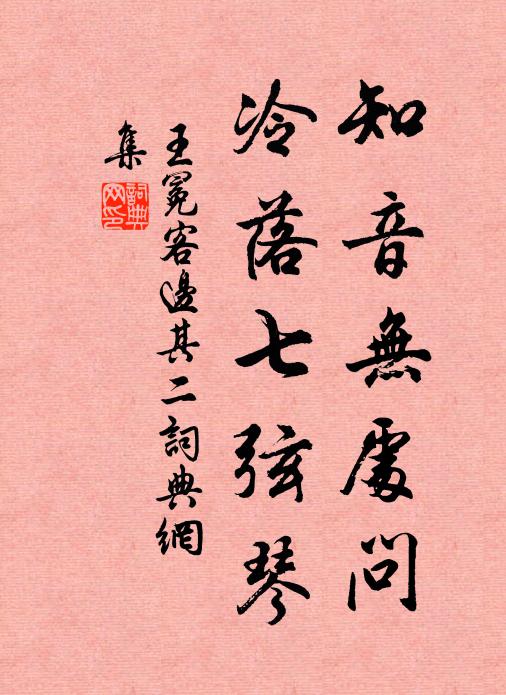 知音無處問
冷落七弦琴
王冕客邊其二詞典網
集
詞典
网印